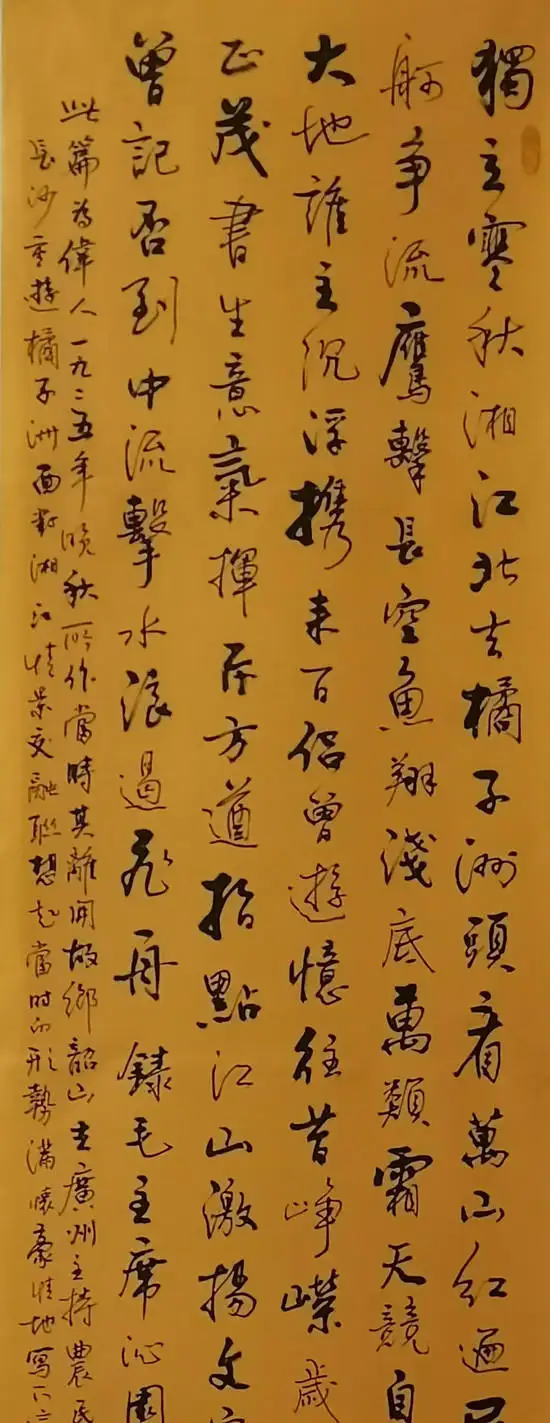 獨立寒秋湘江北去橘子洲頭看萬山紅遍
舸争流鷹擊長空魚翔淺底萬類霜天競自
大地誰主沉浮携來百侣曾遊憶往昔崢嶸歲
正茂書生意氣揮斥方遒指點江山激揚文
曾記否到中流擊水浪遏飛舟 錄毛主席沁園
此篇為偉人一九二五年晚秋所作當時其離開故鄉韶山去廣州主持農民
長沙重遊橘子洲面對湘江情景交融聯想起當時的形勢滿懷豪情地寫下